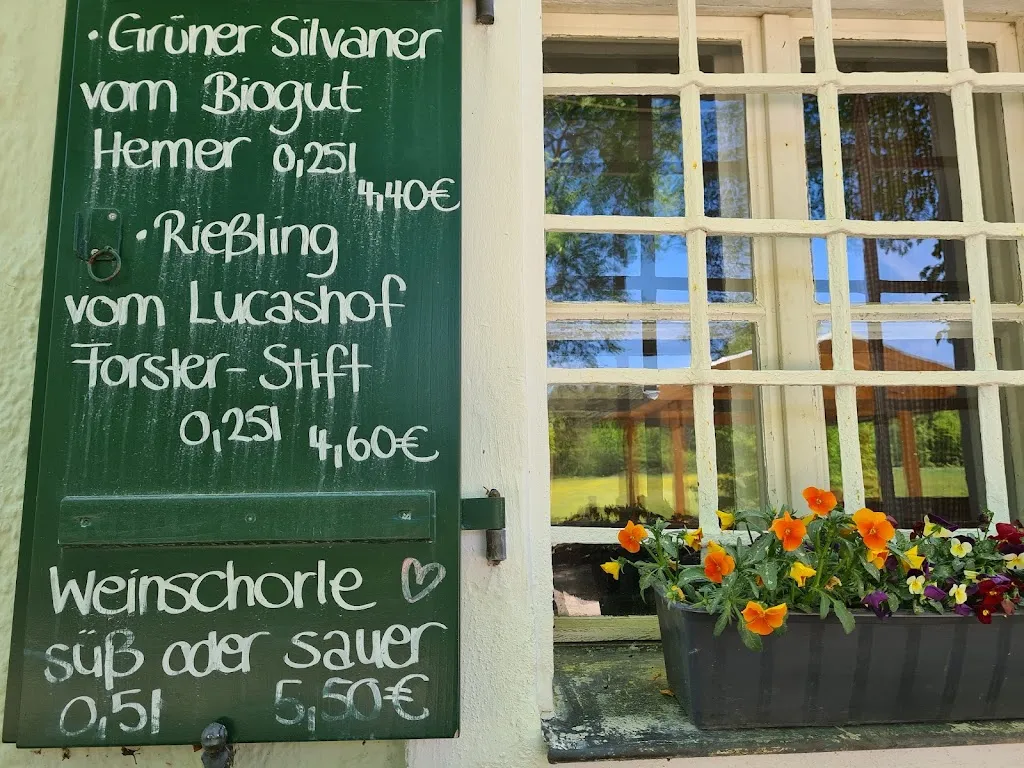 · Grüner Silvaner
vom Biogut
Hemer 0,25l
4,40€
· Rießling
vom Lucashof
Forster-Stift
0,25l 4,60€
Weinschorle ♡
süß oder sauer
0,5l 5,50€